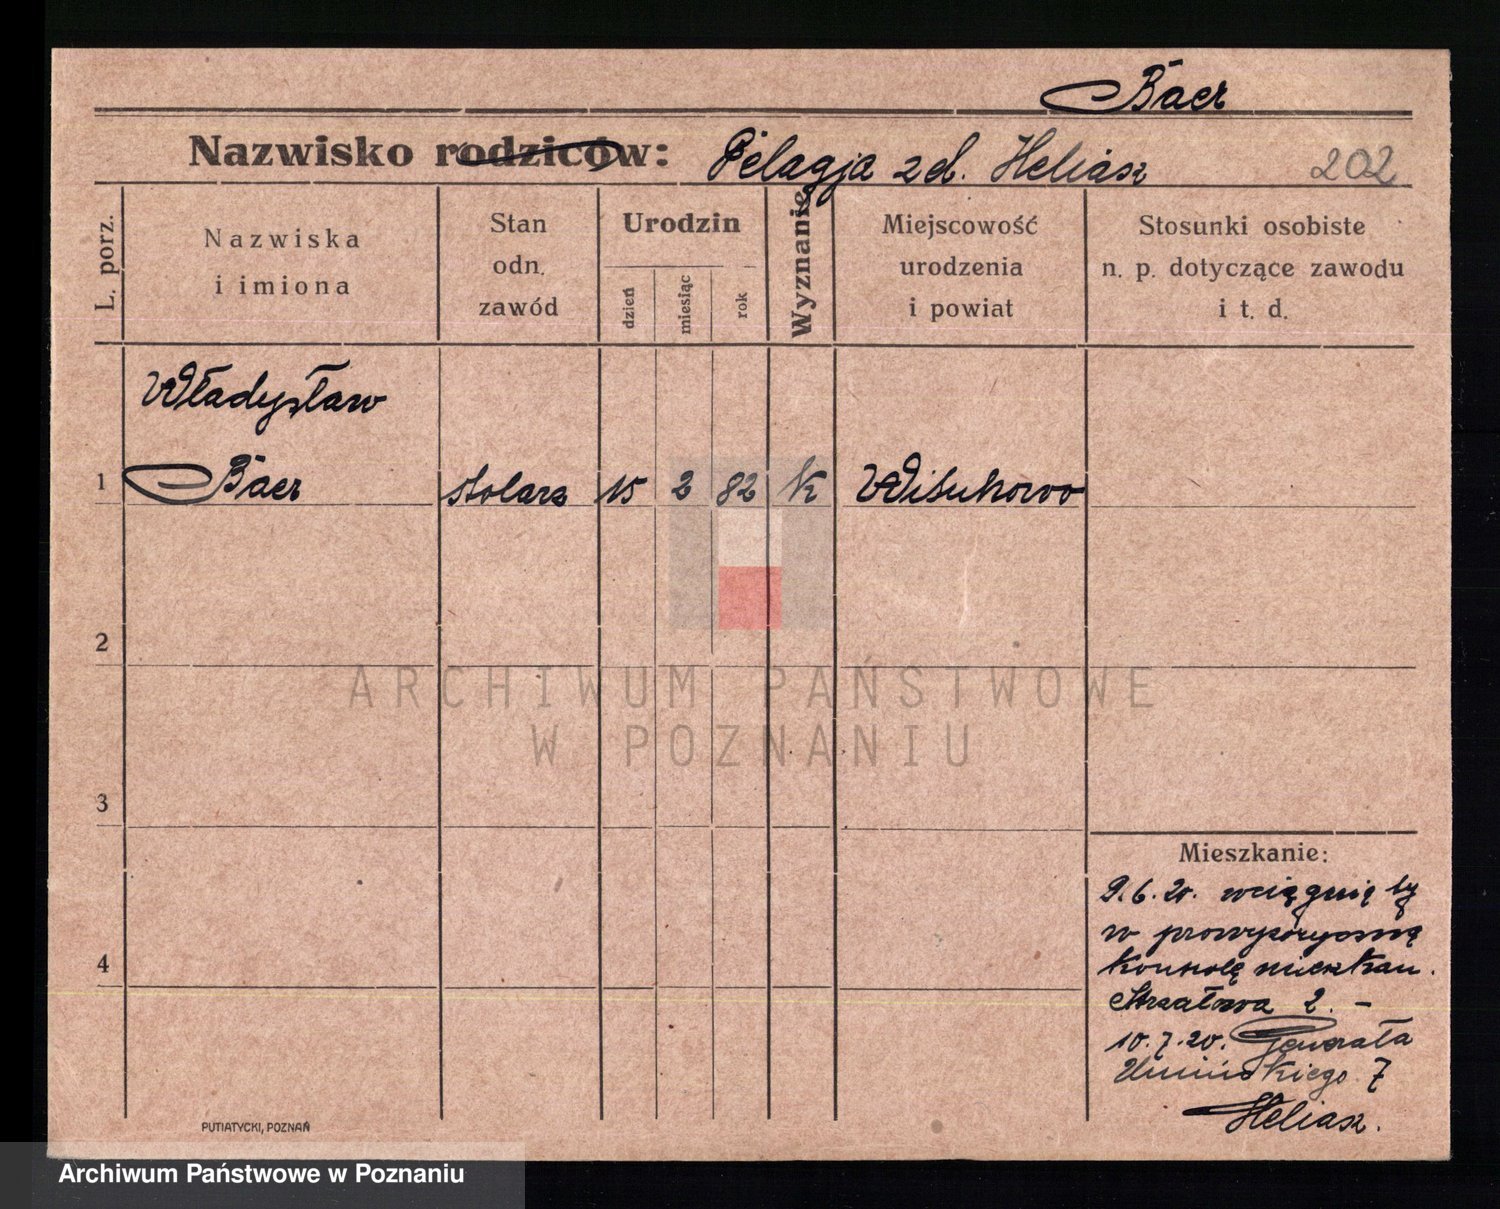 Baer
Nazwisko rodziców: Pelagja zd. Heliasz 202
L. porz.
Nazwiska
i imiona
Stan
odn.
zawód
Urodzin
dzień
miesiąc
rok
Wyznanie
Miejscowość
urodzenia
i powiat
Stosunki osobiste
n. p. dotyczące zawodu
i t. d.
Władysław
1 Baer stolarz 15 2 82 k
2
3
4
Mieszkanie:
9.6.20. wciągnięty
w prowyzoryczną
kontrolę mieszkan.
Strzałowa 2. –
10.7.20. Generała
Umińskiego 7
Heliasz.
PUTIATYCKI, POZNAŃ
ARCHIWUM PAŃSTWOWE
W POZNANIU
Archiwum Państwowe w Poznaniu